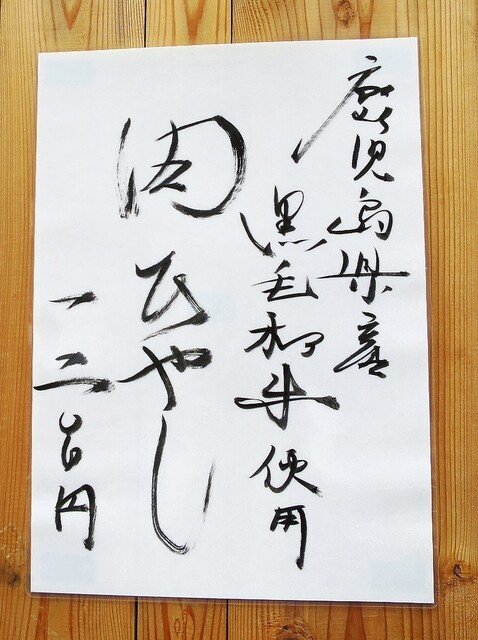 鹿児島県産
黒毛和牛使用
肉ひやし
一二〇〇円